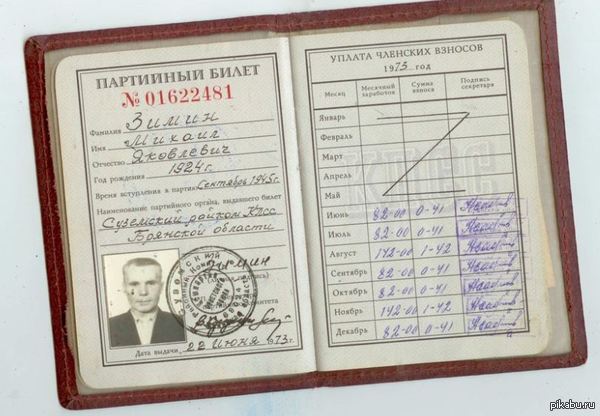 ПАРТИЙНЫЙ БИЛЕТ
№ 01622481
Фамилия Зимин
Имя Михаил
Отчество Яковлевич
Год рождения 1924г.
Время вступления в партию Сентябрь 1945г.
Наименование партийного органа, выдавшего билет
Суземский райком КПСС
Брянской области
Зимин
Дата выдачи 22 июня 1973г.
УПЛАТА ЧЛЕНСКИХ ВЗНОСОВ
1973 год
Месяц Месячный заработок Сумма взноса Подпись секретаря
Январь
Февраль
Март
Апрель
Май
Июнь 82-00 0-41
Июль 82-00 0-41
Август 142-00 1-42
Сентябрь 82-00 0-41
Октябрь 82-00 0-41
Ноябрь 142-00 1-42
Декабрь 82-00 0-41
КПСС
pikabu.ru